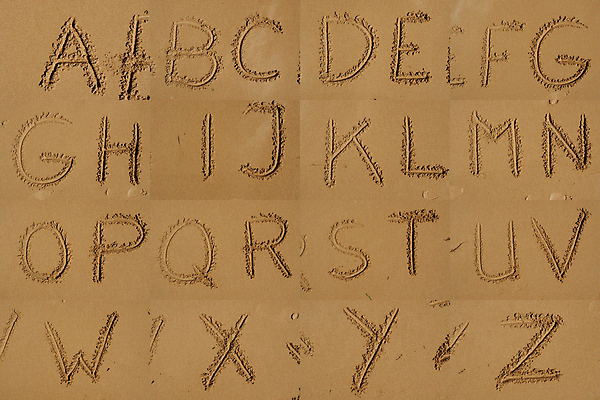 A B C D E F G
G H I J K L M N
O P Q R S T U V
W X Y Z